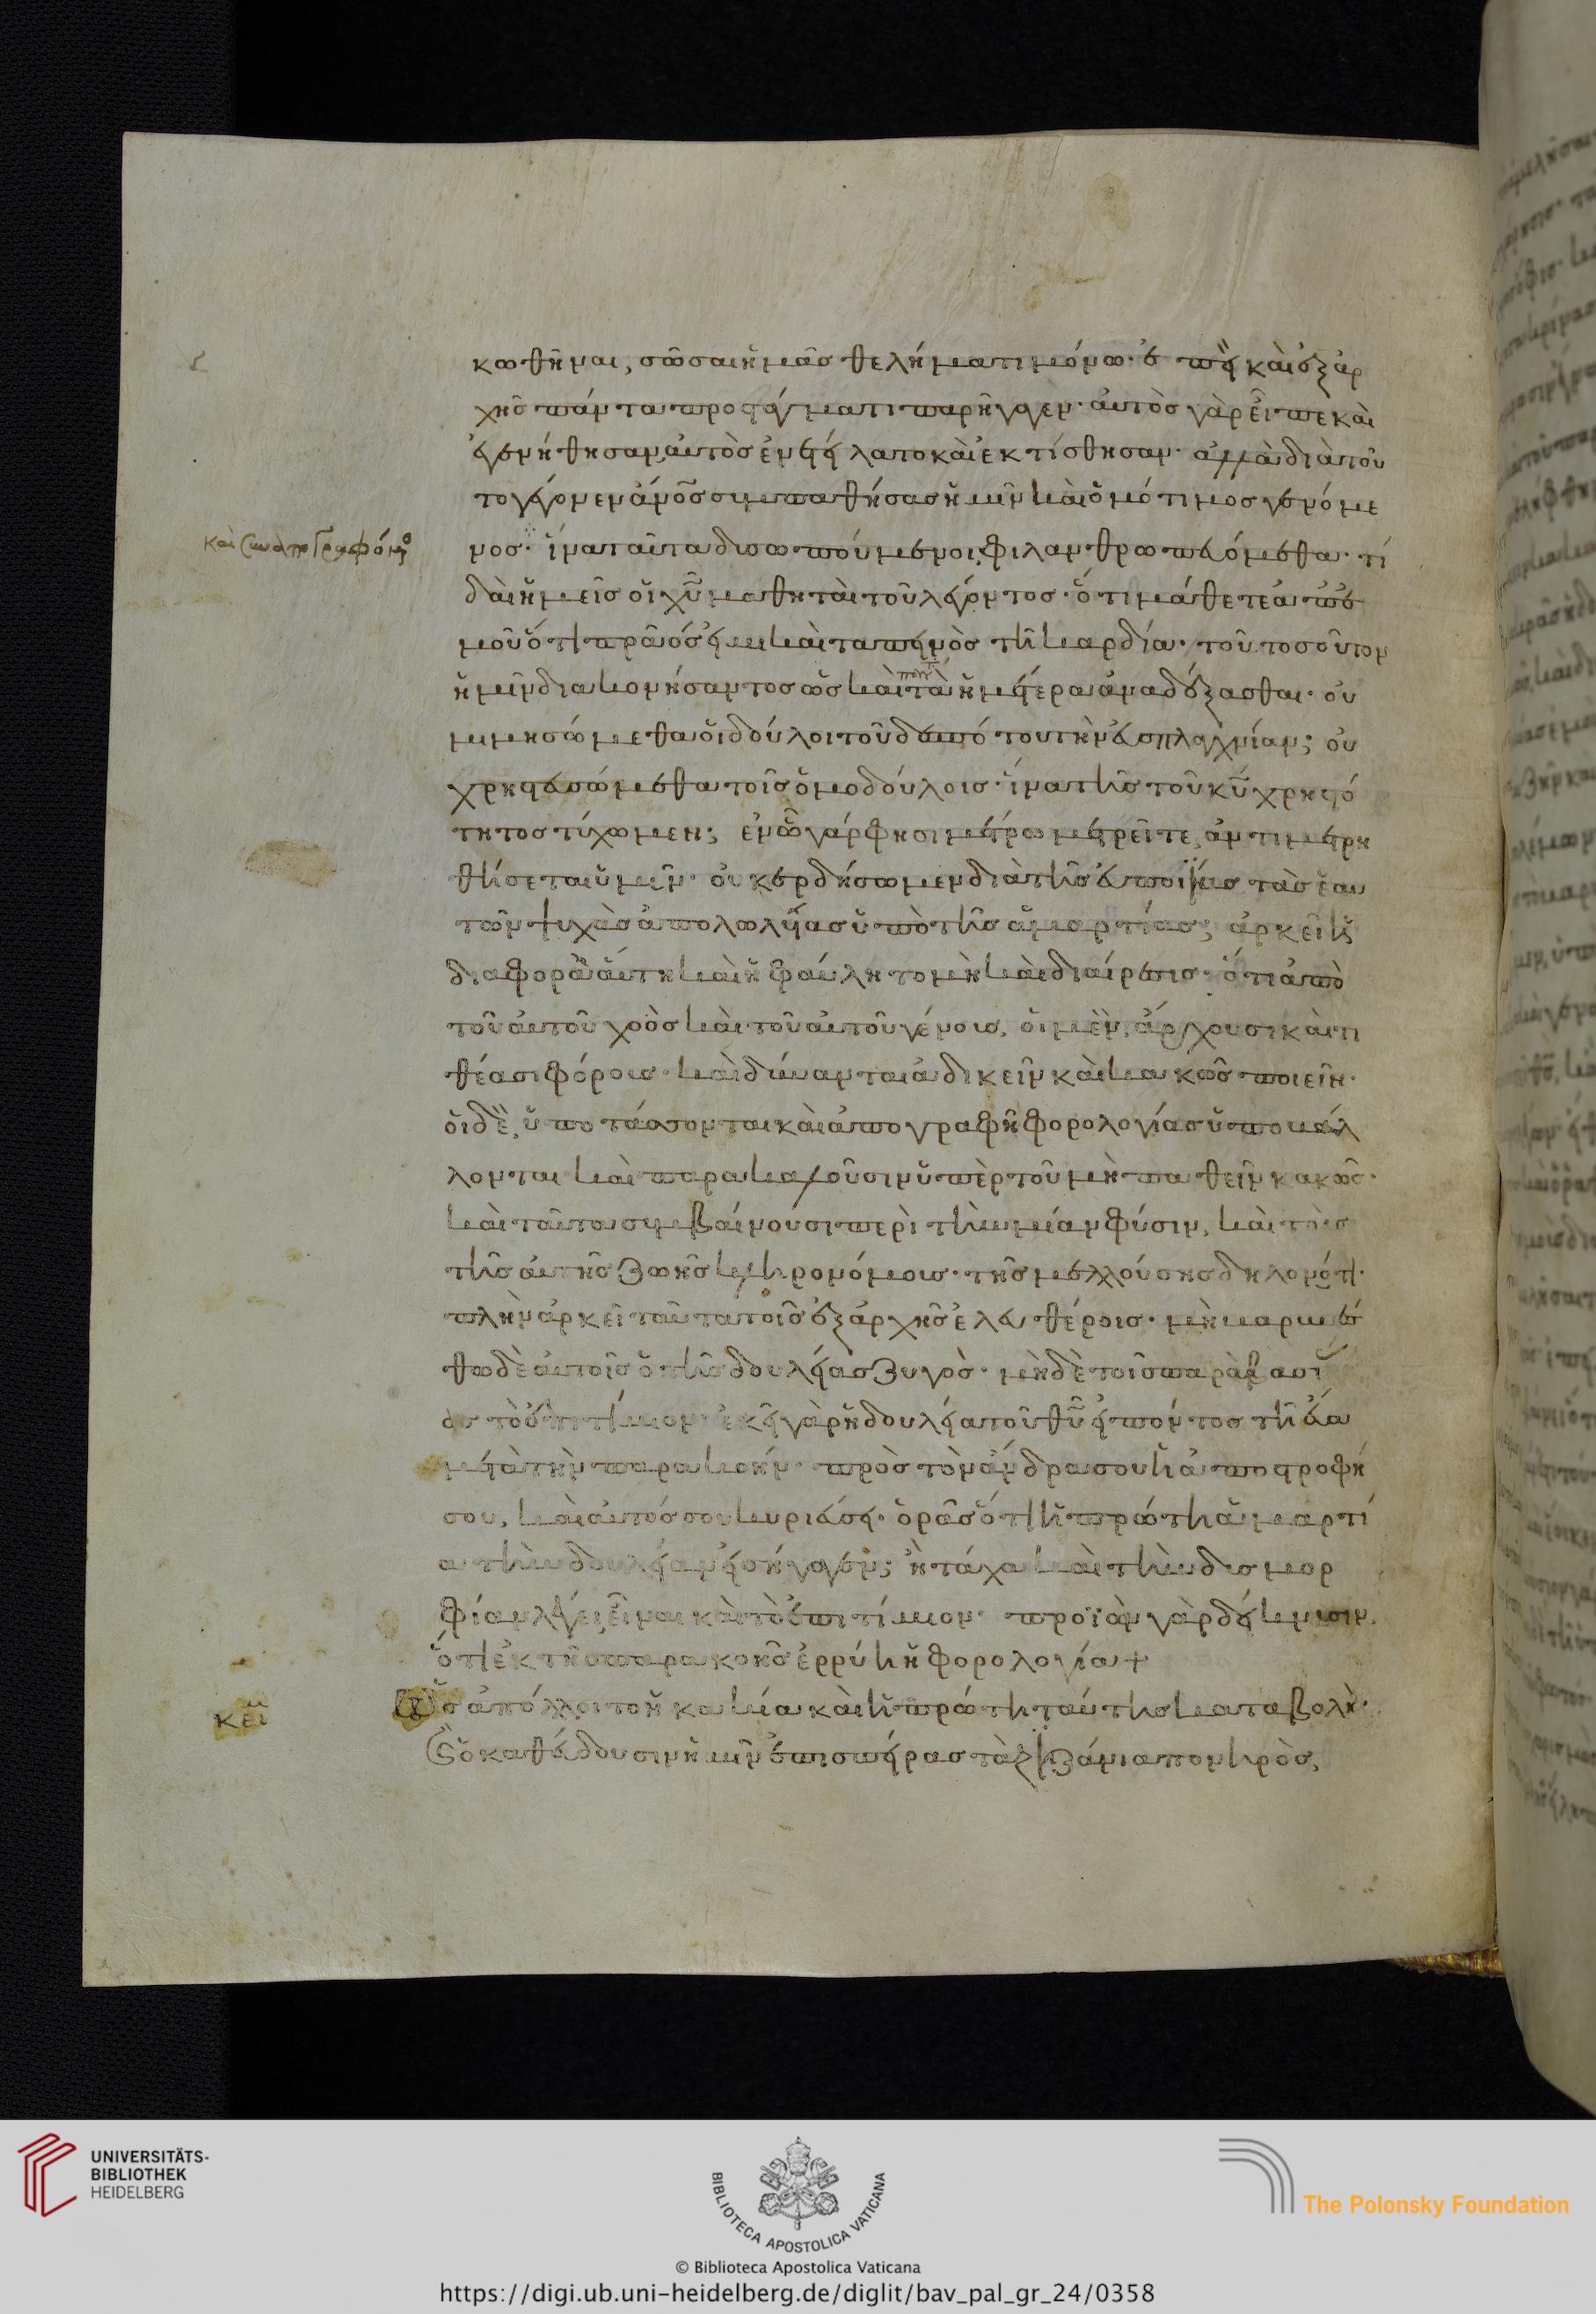 κωθῆναι, σῶσαι ἡμᾶς θελήματι μόνω· ἐ πεὶ καὶ ἐξάρ
χῆς πάντα προστάγματι παρῆγαγεν· ἀυτὸς γὰρ εἶπε καὶ
ἐγενήθησαν, ἀυτὸς ἐνετείλατο καὶ ἐκτίσθησαν· ἀλλὰ διὰ τοῦ
το γέγονεν ἀνος συμπαθήσας ἡμῖν καὶ ὁμότιμος γενόμε
καὶ συναπογραφόμενος
νος· ἵνα ταῦτα δυσωπούμενοι, φιλανθρωπευόμεθα· τί
δαὶ ἡμεῖς οἱ χυ μαθηταὶ τοῦ λέγοντος· ὅτι μάθετε ἀπ' ἐ
μοῦ ὅτι πρᾶός εἰμι καὶ ταπεινὸς τῆ καρδία· τοῦ τοσοῦτον
ἡμῖν διακονήσαντος ὡς καὶ τὰ ἡμέτερα ἀναδέξασθαι· οὐ
μιμησώμεθα οἱ δοῦλοι τοῦ δεσπότου τὴν ἐυσπλαχνίαν; οὐ
χρηστευσώμεθα τοῖς ὁμοδούλοις· ἵνα τῆς τοῦ κυ χρηστό
τητος τύχωμεν; ἐν ὧ γάρ φησι μέτρω μετρεῖτε, ἀντιμετρη
θήσεται ὑμῖν· οὐ κερδήσωμεν διὰ τῆς ἐυποιΐας τὰς ἑαυ
τῶν ψυχὰς ἀπολωλυίας ὑπὸ τῆς ἁμαρτίας; ἀρκεῖ ἡ
διαφορὰ ἅυτη καὶ ἡ φαύλη τομὴ καὶ διαίρεσις· ὅτι ἀπὸ
τοῦ ἀυτοῦ χοὸς καὶ τοῦ ἀυτοῦ γένους, οἱ μὲν, ἄρχουσι καὶ τι
θέασι φόρους· καὶ δύνανται ἀδικεῖν καὶ κακῶς ποιεῖν·
οἱ δὲ, ὑποτάσσονται καὶ ἀπογραφῆ φορολογίας ὑποβάλ
λονται καὶ παρακαλοῦσιν ὑπὲρ τοῦ μὴ παθεῖν κακῶς·
καὶ ταῦτα συμβαίνουσι περὶ τὴν μίαν φύσιν, καὶ τοὺς
τῆς ἀυτῆς ζωῆς κληρονόμους· τῆς μελλούσης δηλονότι·
πλὴν ἀρκεῖ ταῦτα τοῖς ἐξάρχῆς ἐλευθέροις· μὴ βαρυνέ
θω δὲ ἀυτοῖς ὁ τῆς δουλείας ζυγὸς· μηδὲ τοῖς παραβᾶσι
ἐς τὸ ἐπιτίμιον· ἐκεῖ γὰρ ἡ δουλεία τοῦ θυ εἰπόντος τῆ ἔυα
μετὰ τὴν παρακοήν· πρὸς τὸν ἄνδρα σου ἡ ἀποστροφή
σου, καὶ ἀυτός σου κυριεύσει· ὁρᾶς ὅτι ἡ πρώτη ἁμαρτί
α τὴν δουλείαν εἰσήγαγεν; ἢ τάχα καὶ τὴν δυσμορ
φίαν λέγει εἶναι καὶ τὸ ἐπιτίμιον· προϊὼν γὰρ δείκνυσιν,
ὅτι ἐκ τῆς παρακοῆς ἐρρύη ἡ φορολογία +
κεί
Ὡς ἀπόλλοιτο ἡ κακία καὶ ἡ πρώτη ταύτης καταβολὴ·
ὃ καθεύδουσιν ἡμῖν ἐπισπείρας τὰ ζιζάνια πονηρὸς,
UNIVERSITÄTS-
BIBLIOTHEK
HEIDELBERG
BIBLIOTECA APOSTOLICA VATICANA
The Polonsky Foundation
© Biblioteca Apostolica Vaticana
https://digi.ub.uni-heidelberg.de/diglit/bav_pal_gr_24/0358